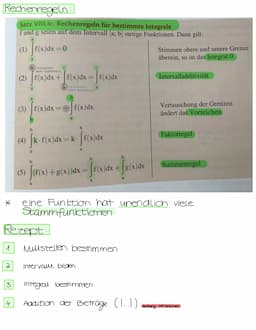 Rechenregeln
Satz VIII.4: Rechenregeln für bestimmte Integrale
f und g seien auf dem Intervall [a; b] stetige Funktionen. Dann gilt:
(1) ∫ f(x)dx = 0
Stimmen obere und untere Grenze
überein, so ist das Integral 0.
(2) ∫ f(x)dx + ∫ f(x)dx = ∫ f(x)dx
Intervalladditivität
(3) ∫ f(x)dx = - ∫ f(x)dx
Vertauschung der Grenzen
ändert das Vorzeichen
(4) ∫ k · f(x)dx = k · ∫ f(x)dx
Faktorregel
(5) ∫ (f(x) + g(x))dx = ∫ f(x)dx + ∫ g(x)dx
Summenregel
* eine Funktion hat unendlich viele
Stammfunktionen
Rezept
1 Nullstellen bestimmen
2 Intervalle bilden
3 Integral bestimmen
4 Addition der Beträge (|..|)